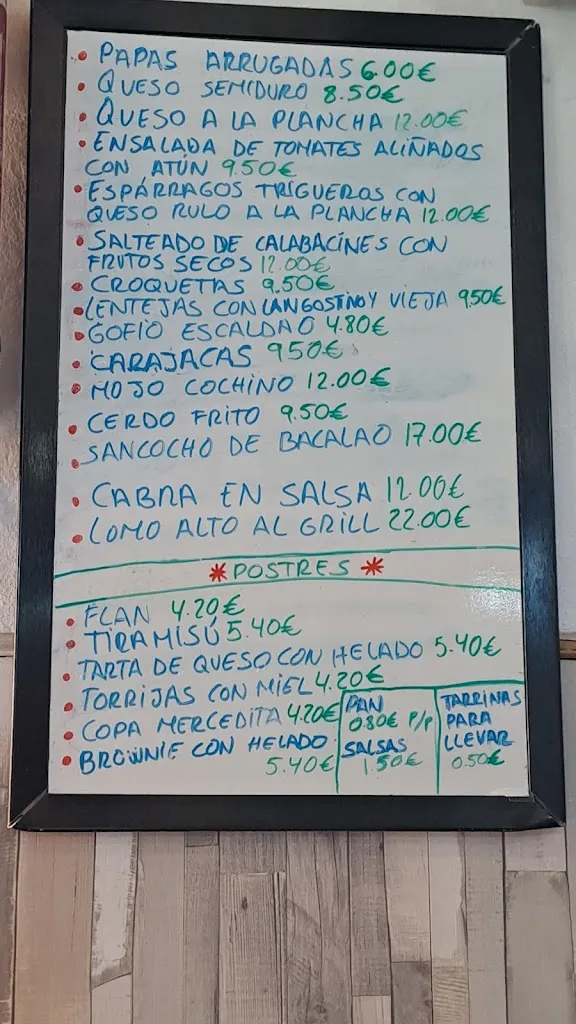 • PAPAS ARRUGADAS 6.00€
• QUESO SEMIDURO 8.50€
• QUESO A LA PLANCHA 12.00€
• ENSALADA DE TOMATES ALIÑADOS
CON ATÚN 9.50€
• ESPÁRRAGOS TRIGUEROS CON
QUESO RULO A LA PLANCHA 12.00€
• SALTEADO DE CALABACINES CON
FRUTOS SECOS 12.00€
• CROQUETAS 9.50€
• LENTEJAS CON LANGOSTINO Y VIEJA 9.50€
• GOFIO ESCALDAO 4.80€
• CARAJACAS 9.50€
• MOJO COCHINO 12.00€
• CERDO FRITO 9.50€
• SANCOCHO DE BACALAO 17.00€
• CABRA EN SALSA 12.00€
• LOMO ALTO AL GRILL 22.00€
* POSTRES *
• FLAN 4.20€
• TIRAMISÚ 5.40€
• TARTA DE QUESO CON HELADO 5.40€
• TORRIJAS CON MIEL 4.20€
• COPA MERCEDITA 4.20€
• BROWNIE CON HELADO
5.40€
PAN
0.80€ P/p
SALSAS
1.50€
TARRINAS
PARA
LLEVAR
0.50€